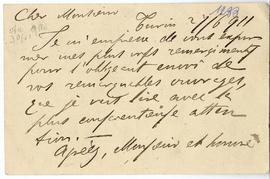 Cher Monsieur
Turin 2/6 911
Je m'empresse de vous expri-
mer mes plus vifs remerciements
pour l'obligeant envoi de
vos remarquables ouvrages,
que je vais lire avec la
plus consciencieuse atten
tion.
Agréez, Monsieur et honoré